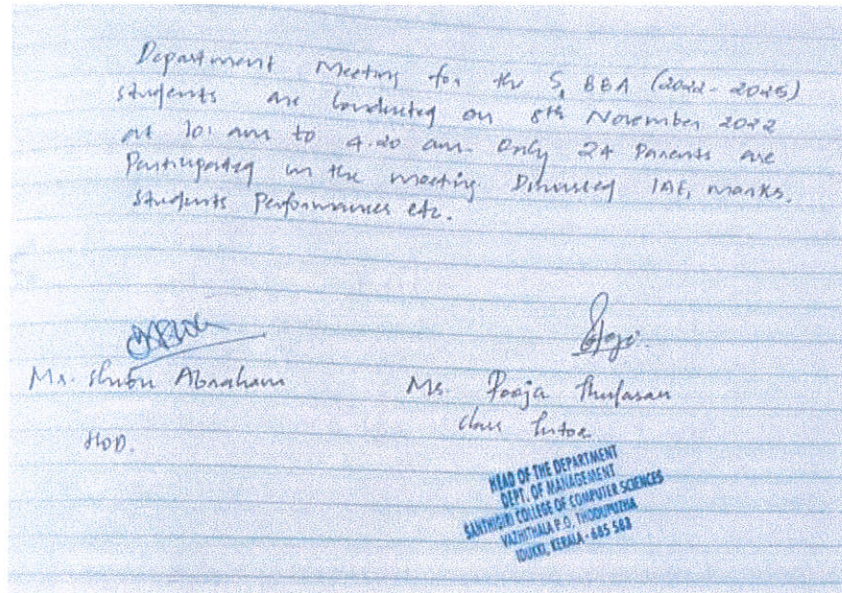 Department Meeting for the S1 BBA (2022-2025)
students are conducted on 8th November 2022
at 10: am to 4.20 am. Only 24 Parents are
Participated in the meeting. Discussed IAE, marks,
students Performances etc.
Mr. Shibu Abraham
Ms. Pooja Thulasan
HOD.
class tutor
HEAD OF THE DEPARTMENT
DEPT. OF MANAGEMENT
SANTHIGIRI COLLEGE OF COMPUTER SCIENCES
VAZHITHALA P.O, THODUPUZHA
IDUKKI, KERALA - 685 583